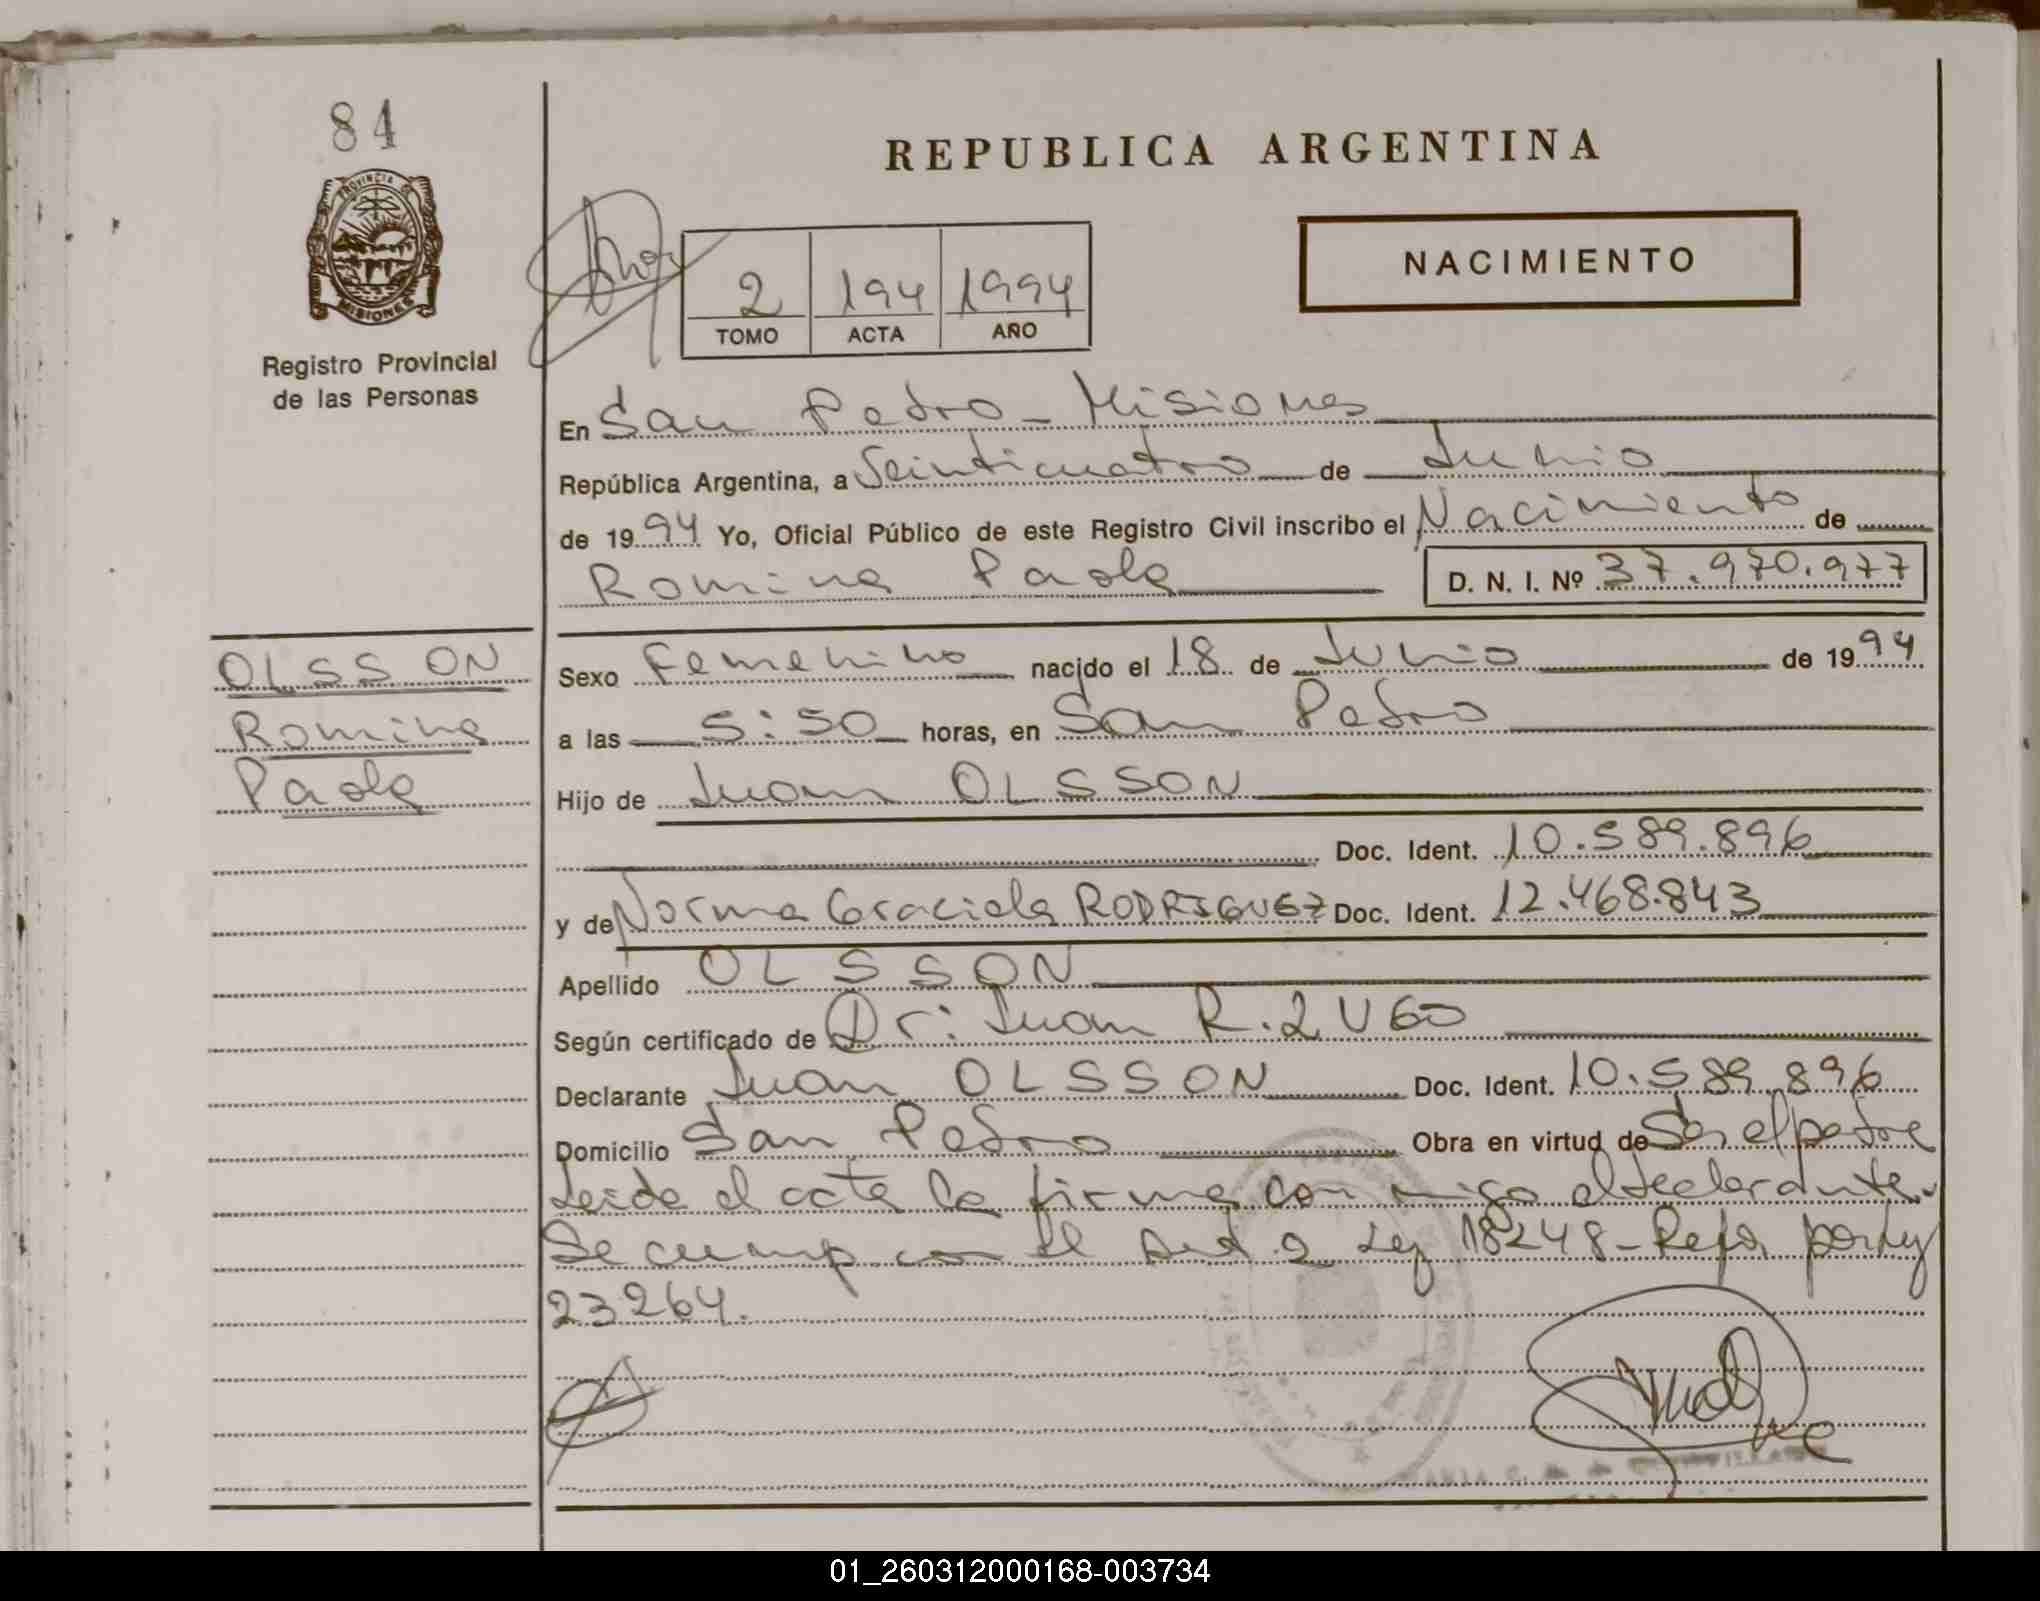 84
PROVINCIA DE
MISIONES
Registro Provincial
de las Personas
REPUBLICA ARGENTINA
NACIMIENTO
2 194 1994
TOMO ACTA AÑO
En San Pedro - Misiones
República Argentina, a Veinticuatro de Junio
de 1994 Yo, Oficial Público de este Registro Civil inscribo el Nacimiento de
Romina Paola D. N. I. Nº 37.970.977
OLSSON
Romina
Paola
Sexo Femenino nacido el 18 de Junio de 1994
a las 5:50 horas, en San Pedro
Hijo de Juan OLSSON
Doc. Ident. 10.589.896
y de Norma Graciela RODRIGUEZ Doc. Ident. 12.468.843
Apellido OLSSON
Según certificado de Dr: Juan R. LUGO
Declarante Juan OLSSON Doc. Ident. 10.589.896
Domicilio San Pedro Obra en virtud de Ser el padre
Leida el acta la firma con migo el declarante.
Se cump con el Art. 2 Ley 18248 - Refor por Ley
23264.
01_260312000168-003734